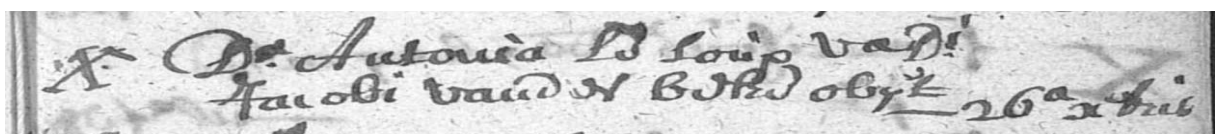 X. Da. Antonia Le Loup vad.
Jacobi vander beke obijt 26a xbris